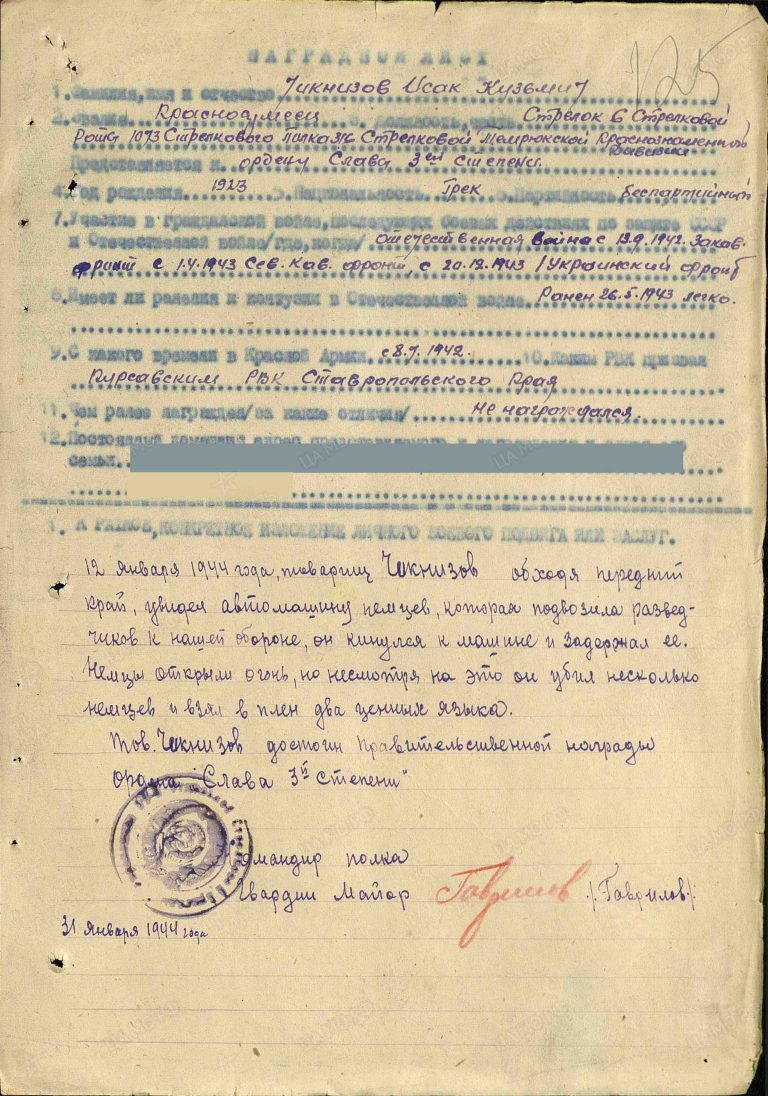 НАГРАДНОЙ ЛИСТ
125
1. Фамилия, имя и отчество Чикнизов Исак Кузьмич
2. Звание Красноармеец 3. Должность, часть Стрелок 6 Стрелковой
Роты 1073 Стрелкового Полка 316 Стрелковой Темрюкской Краснознаменной
Дивизии
Представляется к ордену Слава 3ей степени.
4. Год рождения 1923 5. Национальность Грек 6. Партийность беспартийный
7. Участие в гражданской войне, последующих боевых действиях по защите СССР
и Отечественной войне /где, когда/ отечественная война с 13.9.1942. Закав.
фронт с 1.4.1943 Сев. Кав. фронт, с 20.12.1943 1 Украинский фронт
8. Имеет ли ранения и контузии в Отечественной войне. Ранен 26.5.1943 легко.
9. С какого времени в Красной Армии с 8.7.1942. 10. Каким РВК призван
Курсавским РВК Ставропольского Края
11. Чем ранее награжден /за какие отличия/ не награждался.
12. Постоянный домашний адрес представляемого к награждению и адрес его
семьи.
1. КРАТКОЕ, КОНКРЕТНОЕ ИЗЛОЖЕНИЕ ЛИЧНОГО БОЕВОГО ПОДВИГА ИЛИ ЗАСЛУГ.
12 января 1944 года, товарищ Чикнизов обходя передний
край, увидел автомашину немцев, которая подвозила развед-
чиков к нашей обороне, он кинулся к машине и задержал ее.
Немцы открыли огонь, но несмотря на это он убил несколько
немцев и взял в плен два ценных языка.
Тов. Чикнизов достоин правительственной награды
ордена "Слава 3й степени"
Командир полка
Гвардии Майор Гаврилов /Гаврилов/.
31 января 1944 года